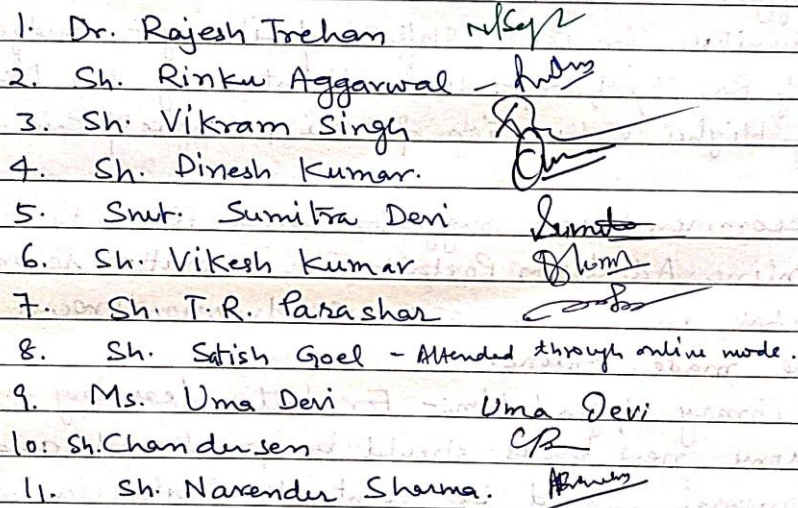 1. Dr. Rajesh Trehan
2. Sh. Rinku Aggarwal -
3. Sh. Vikram Singh
4. Sh. Dinesh Kumar.
5. Smt. Sumitra Devi
6. Sh. Vikesh Kumar
7. Sh. T.R. Parashar
8. Sh. Satish Goel - Attended through online mode.
9. Ms. Uma Devi Uma Devi
10. Sh. Chandersen
11. Sh. Narender Sharma.